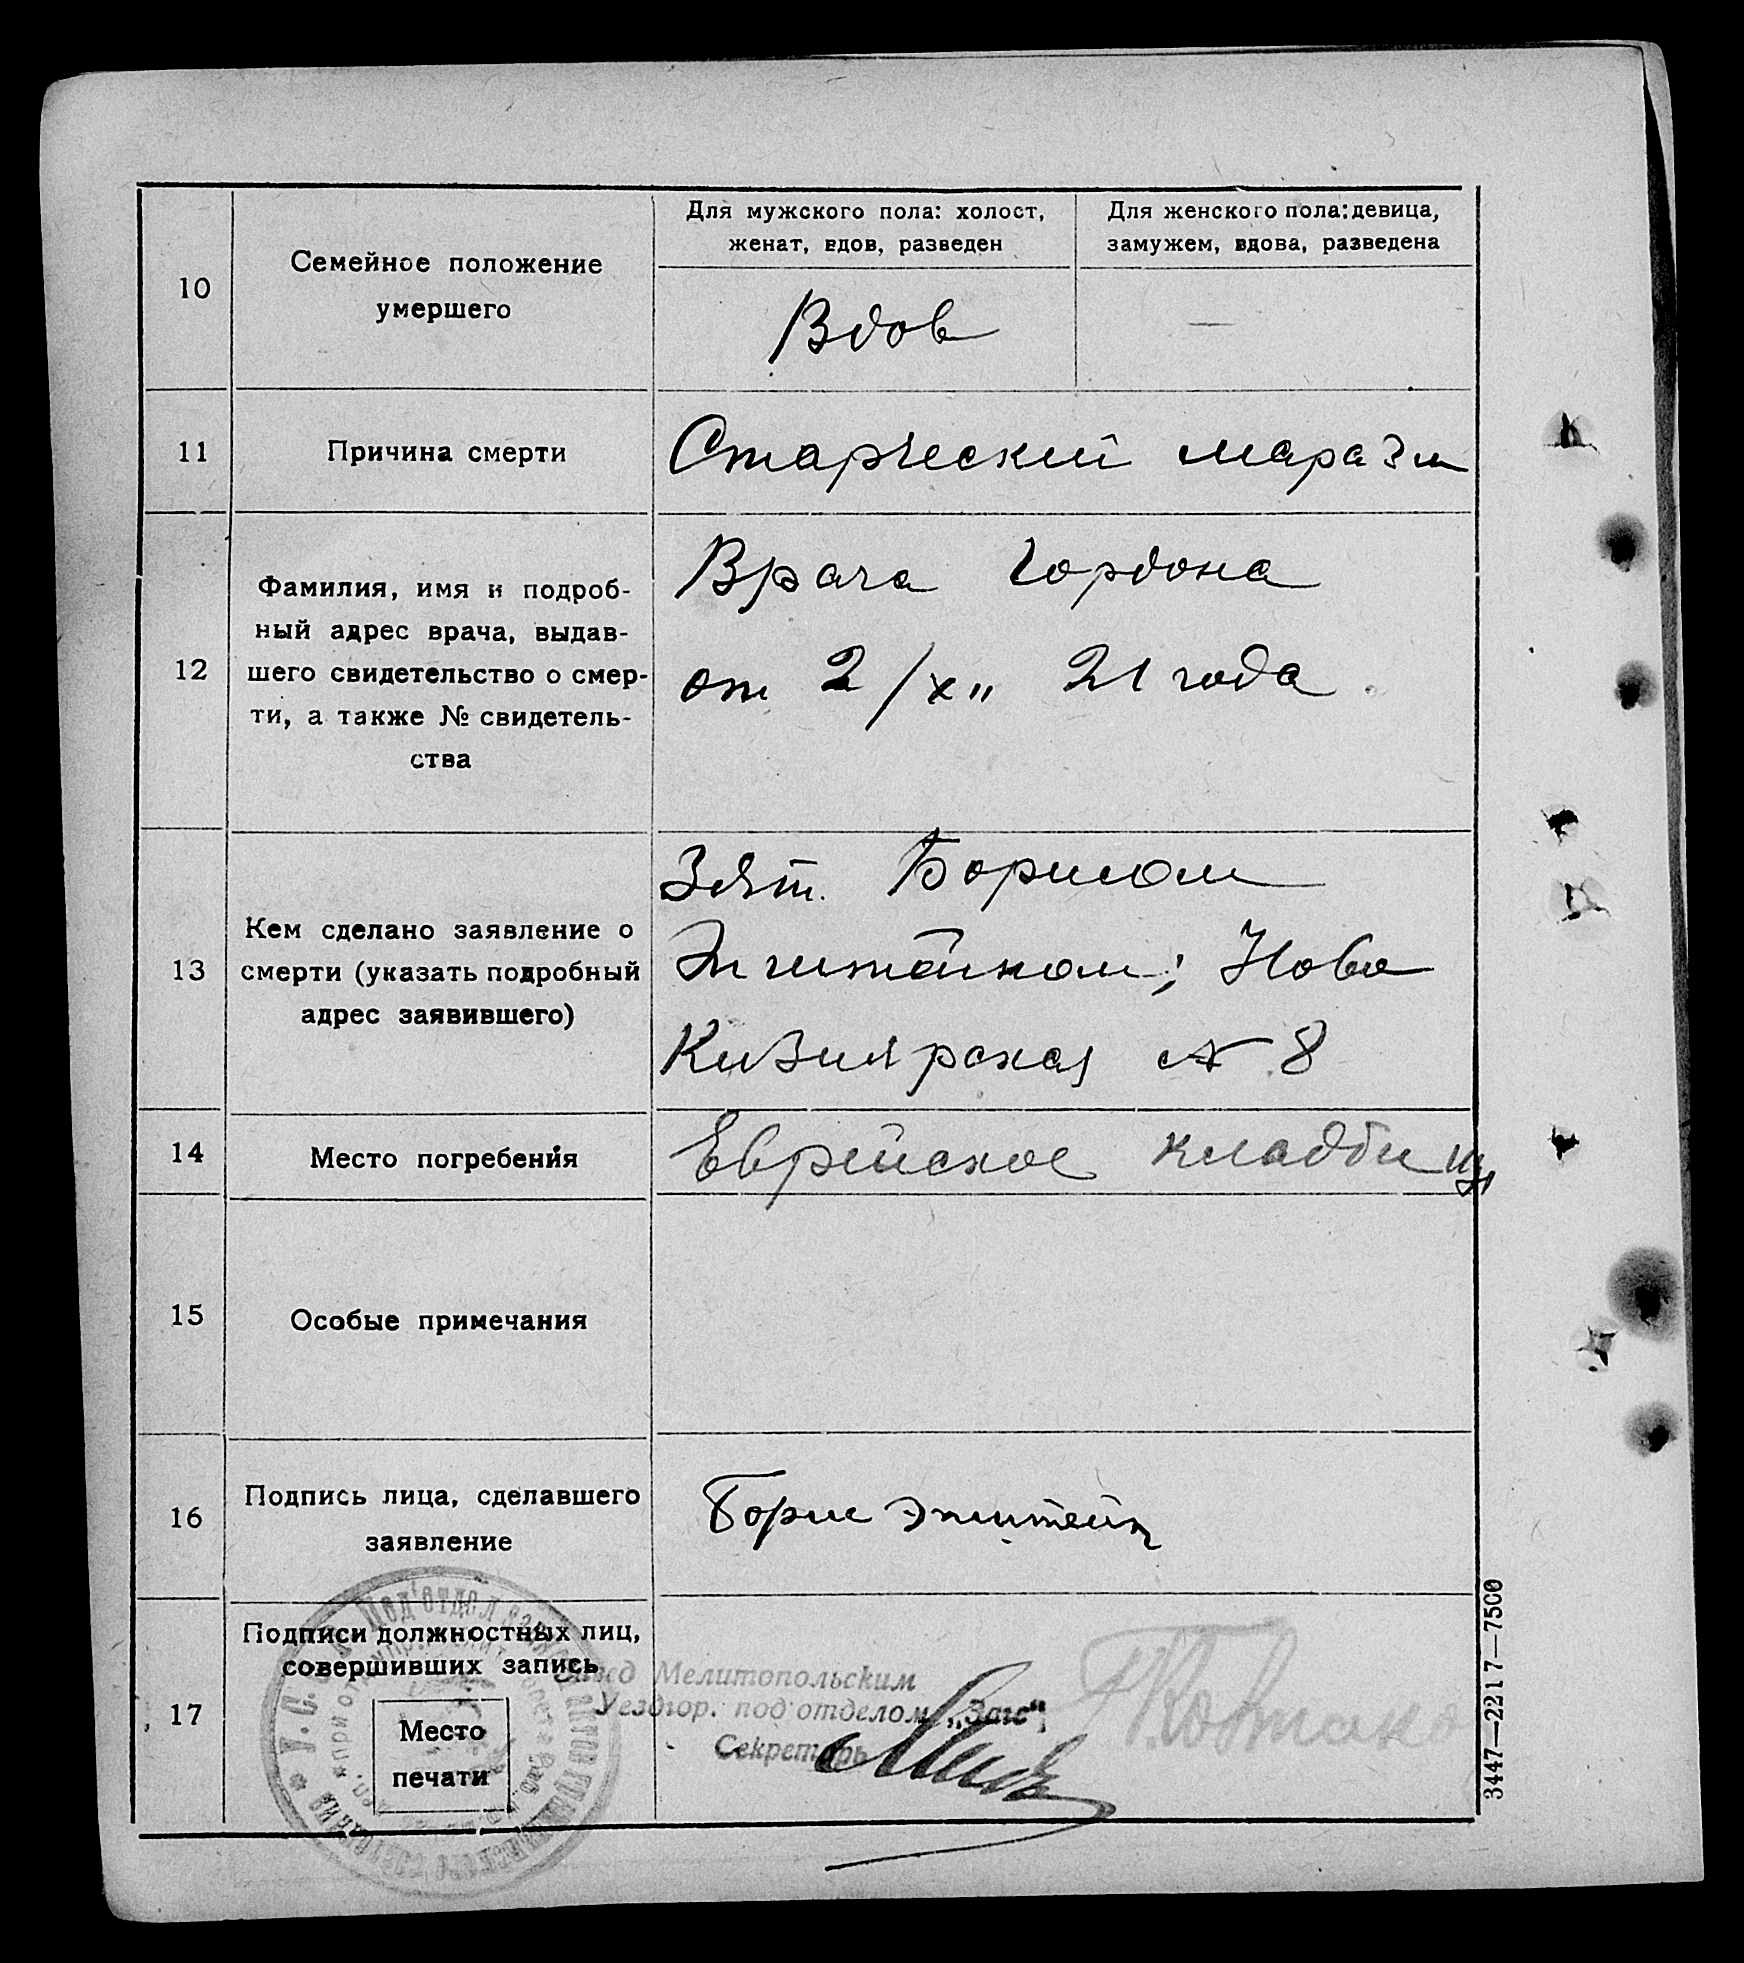 10
Семейное положение
умершего
Для мужского пола: холост,
женат, вдов, разведен
Для женского пола: девица,
замужем, вдова, разведена
Вдов
—
11
Причина смерти
Старческий маразм
12
Фамилия, имя и подроб-
ный адрес врача, выдав-
шего свидетельство о смер-
ти, а также № свидетель-
ства
Врача Гордона
от 2/х" 21 года.
13
Кем сделано заявление о
смерти (указать подробный
адрес заявившего)
Зят. Борисом
Эпштейном; Ново
Кизиярская № 8
14
Место погребения
Еврейское кладбищ
15
Особые примечания
16
Подпись лица, сделавшего
заявление
Борис Эпштейн
17
Подписи должностных лиц,
совершивших запись
Место
печати
Мелитопольским
Уездгор. под'отделом „Загс"
Секретарь
3447—2217—7500
Под'отдел
У. С. С.